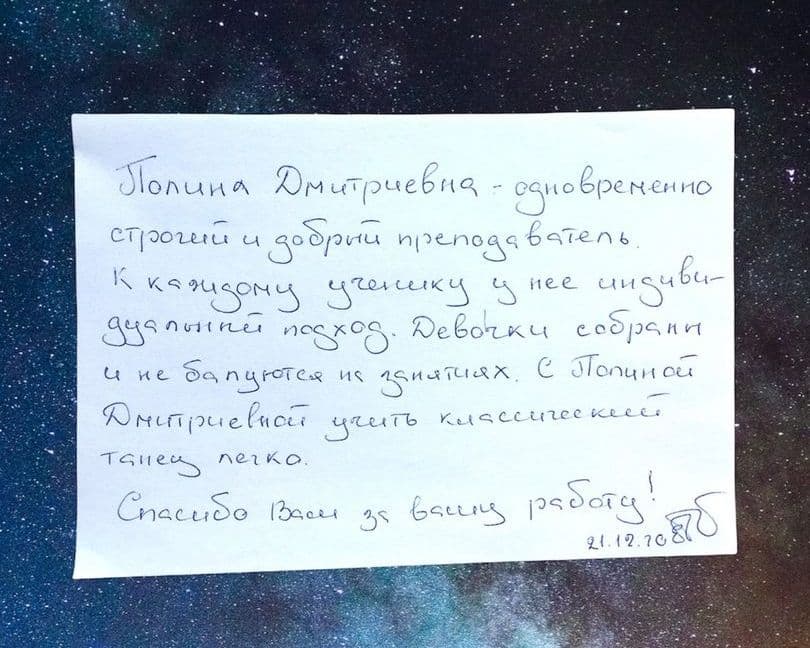 Полина Дмитриевна - одновременно
строгий и добрый преподаватель.
К каждому ученику у нее индиви-
дуальный подход. Девочки собраны
и не балуются на занятиях. С Полиной
Дмитриевной учить классический
танец легко.
Спасибо Вам за вашу работу!
21.12.20